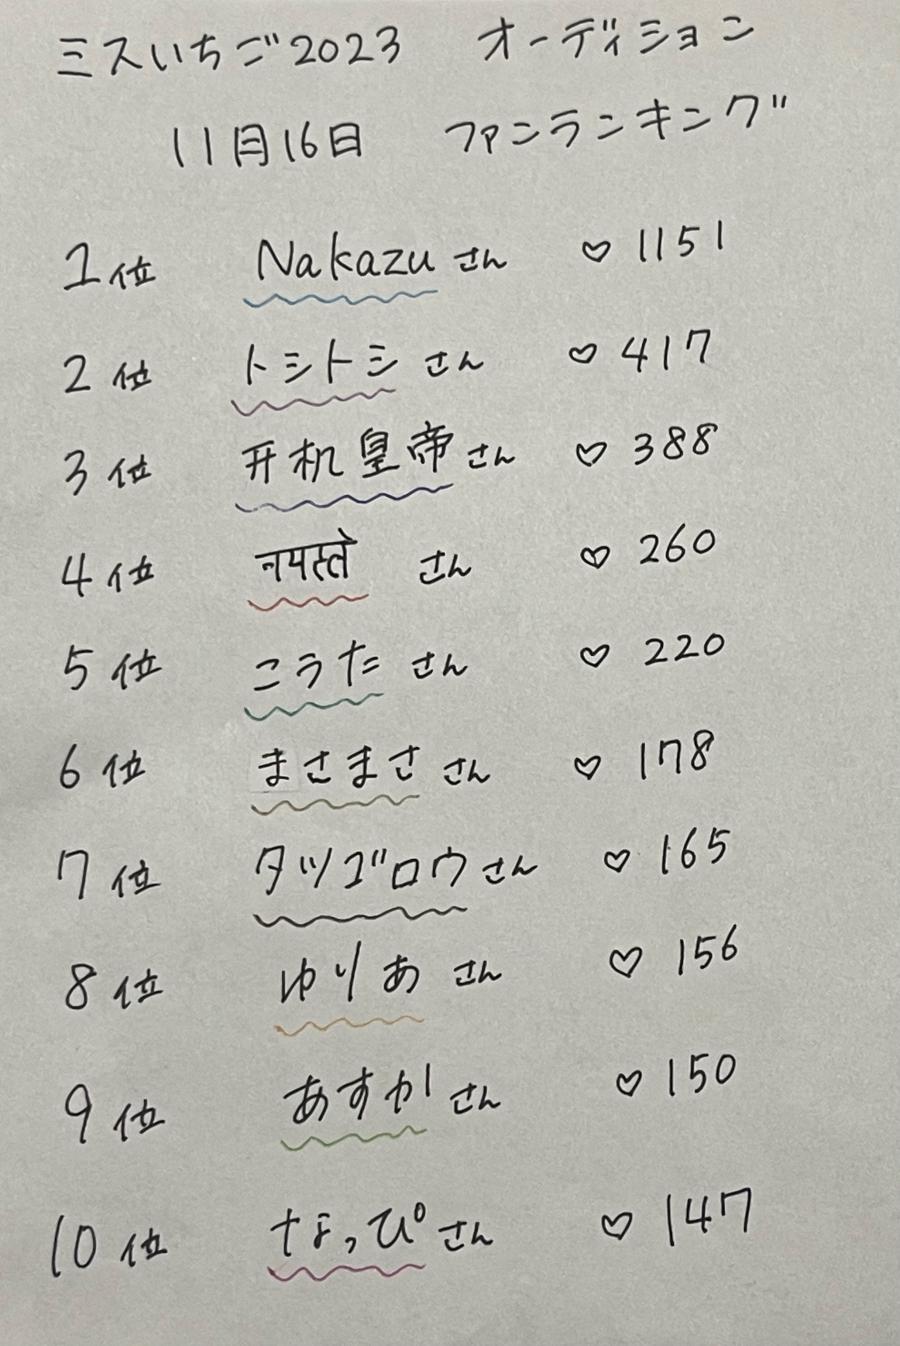 ミスいちご2023 オーディション
11月16日 ファンランキング
1位 Nakazuさん ♡ 1151
2位 トシトシさん ♡ 417
3位 开机皇帝さん ♡ 388
4位 नमस्ते さん ♡ 260
5位 こうたさん ♡ 220
6位 まさまささん ♡ 178
7位 タツゴロウさん ♡ 165
8位 ゆりあさん ♡ 156
9位 あすかさん ♡ 150
10位 なっぴさん ♡ 147